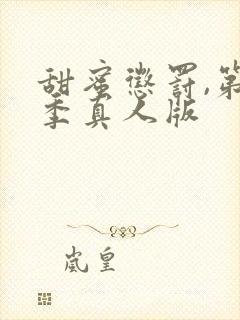 甜蜜懲罰,第
季真人版
嵐皇